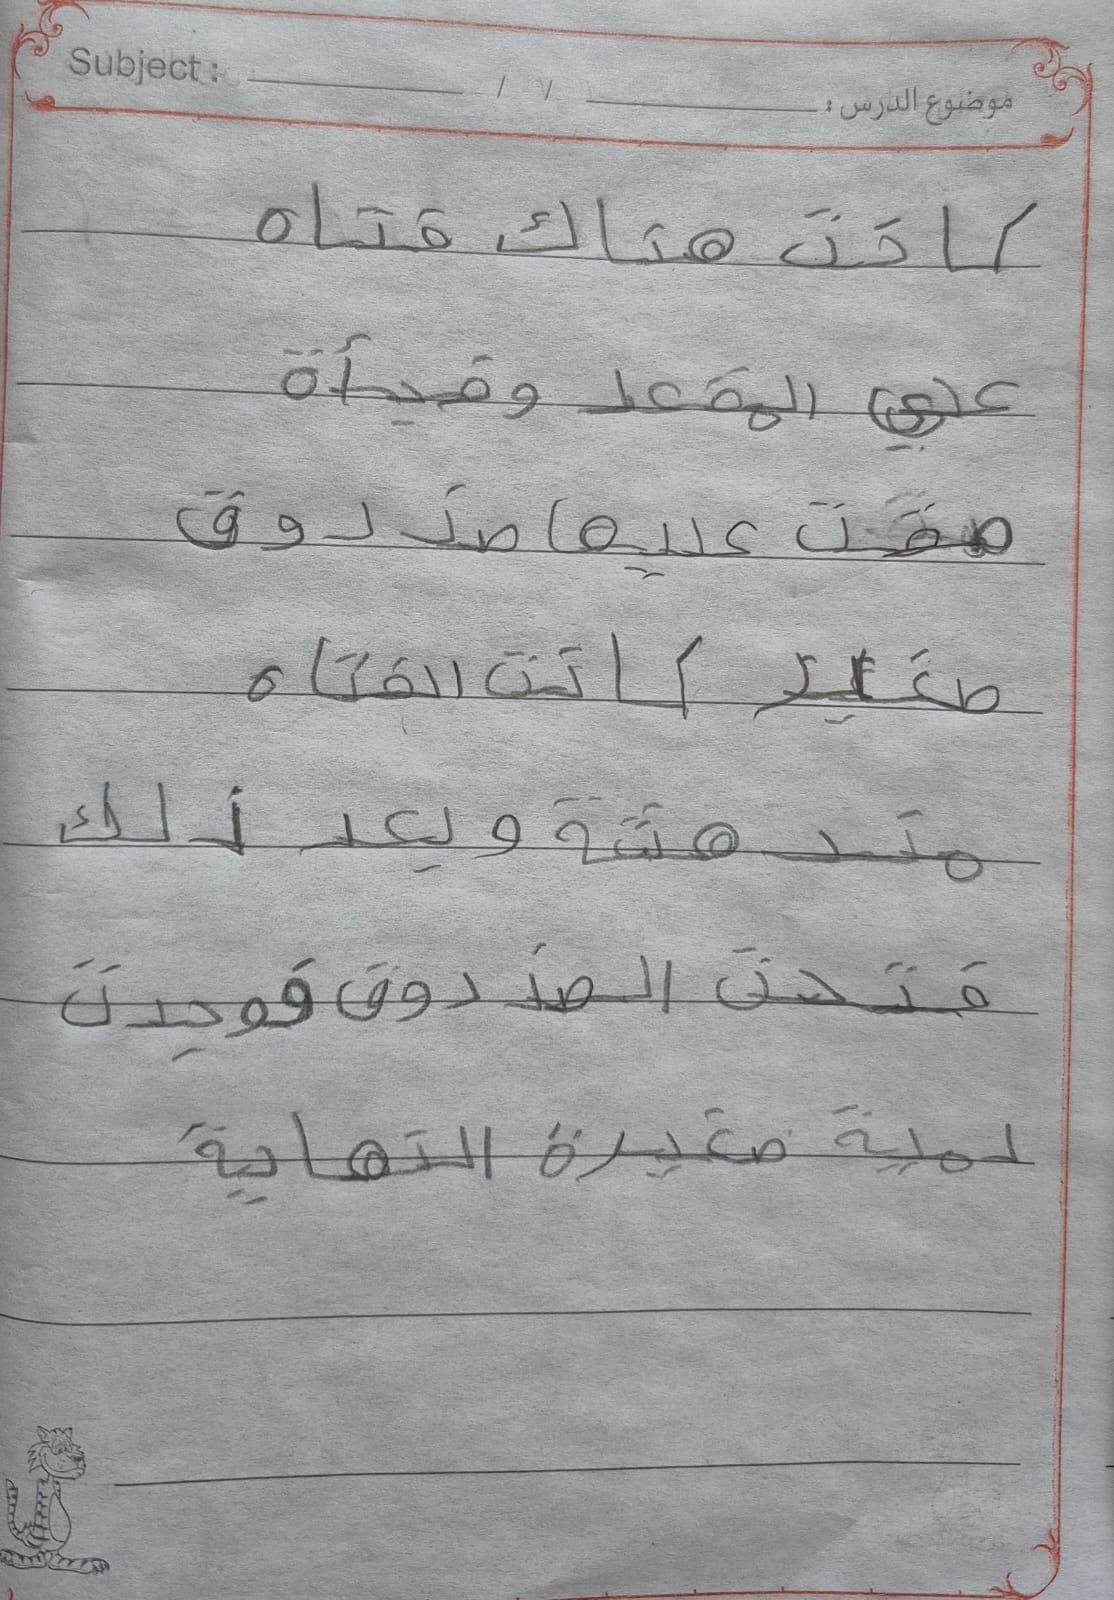 Subject: / / موضوع الدرس:
كانت هناك فتاه
علي المقعد وفجأة
صقت عليها صندوق
صغير كانت الفتاه
مندهشة وبعد ذلك
فتحت الصندوق فوجدت
لمبة صغيرة النهاية